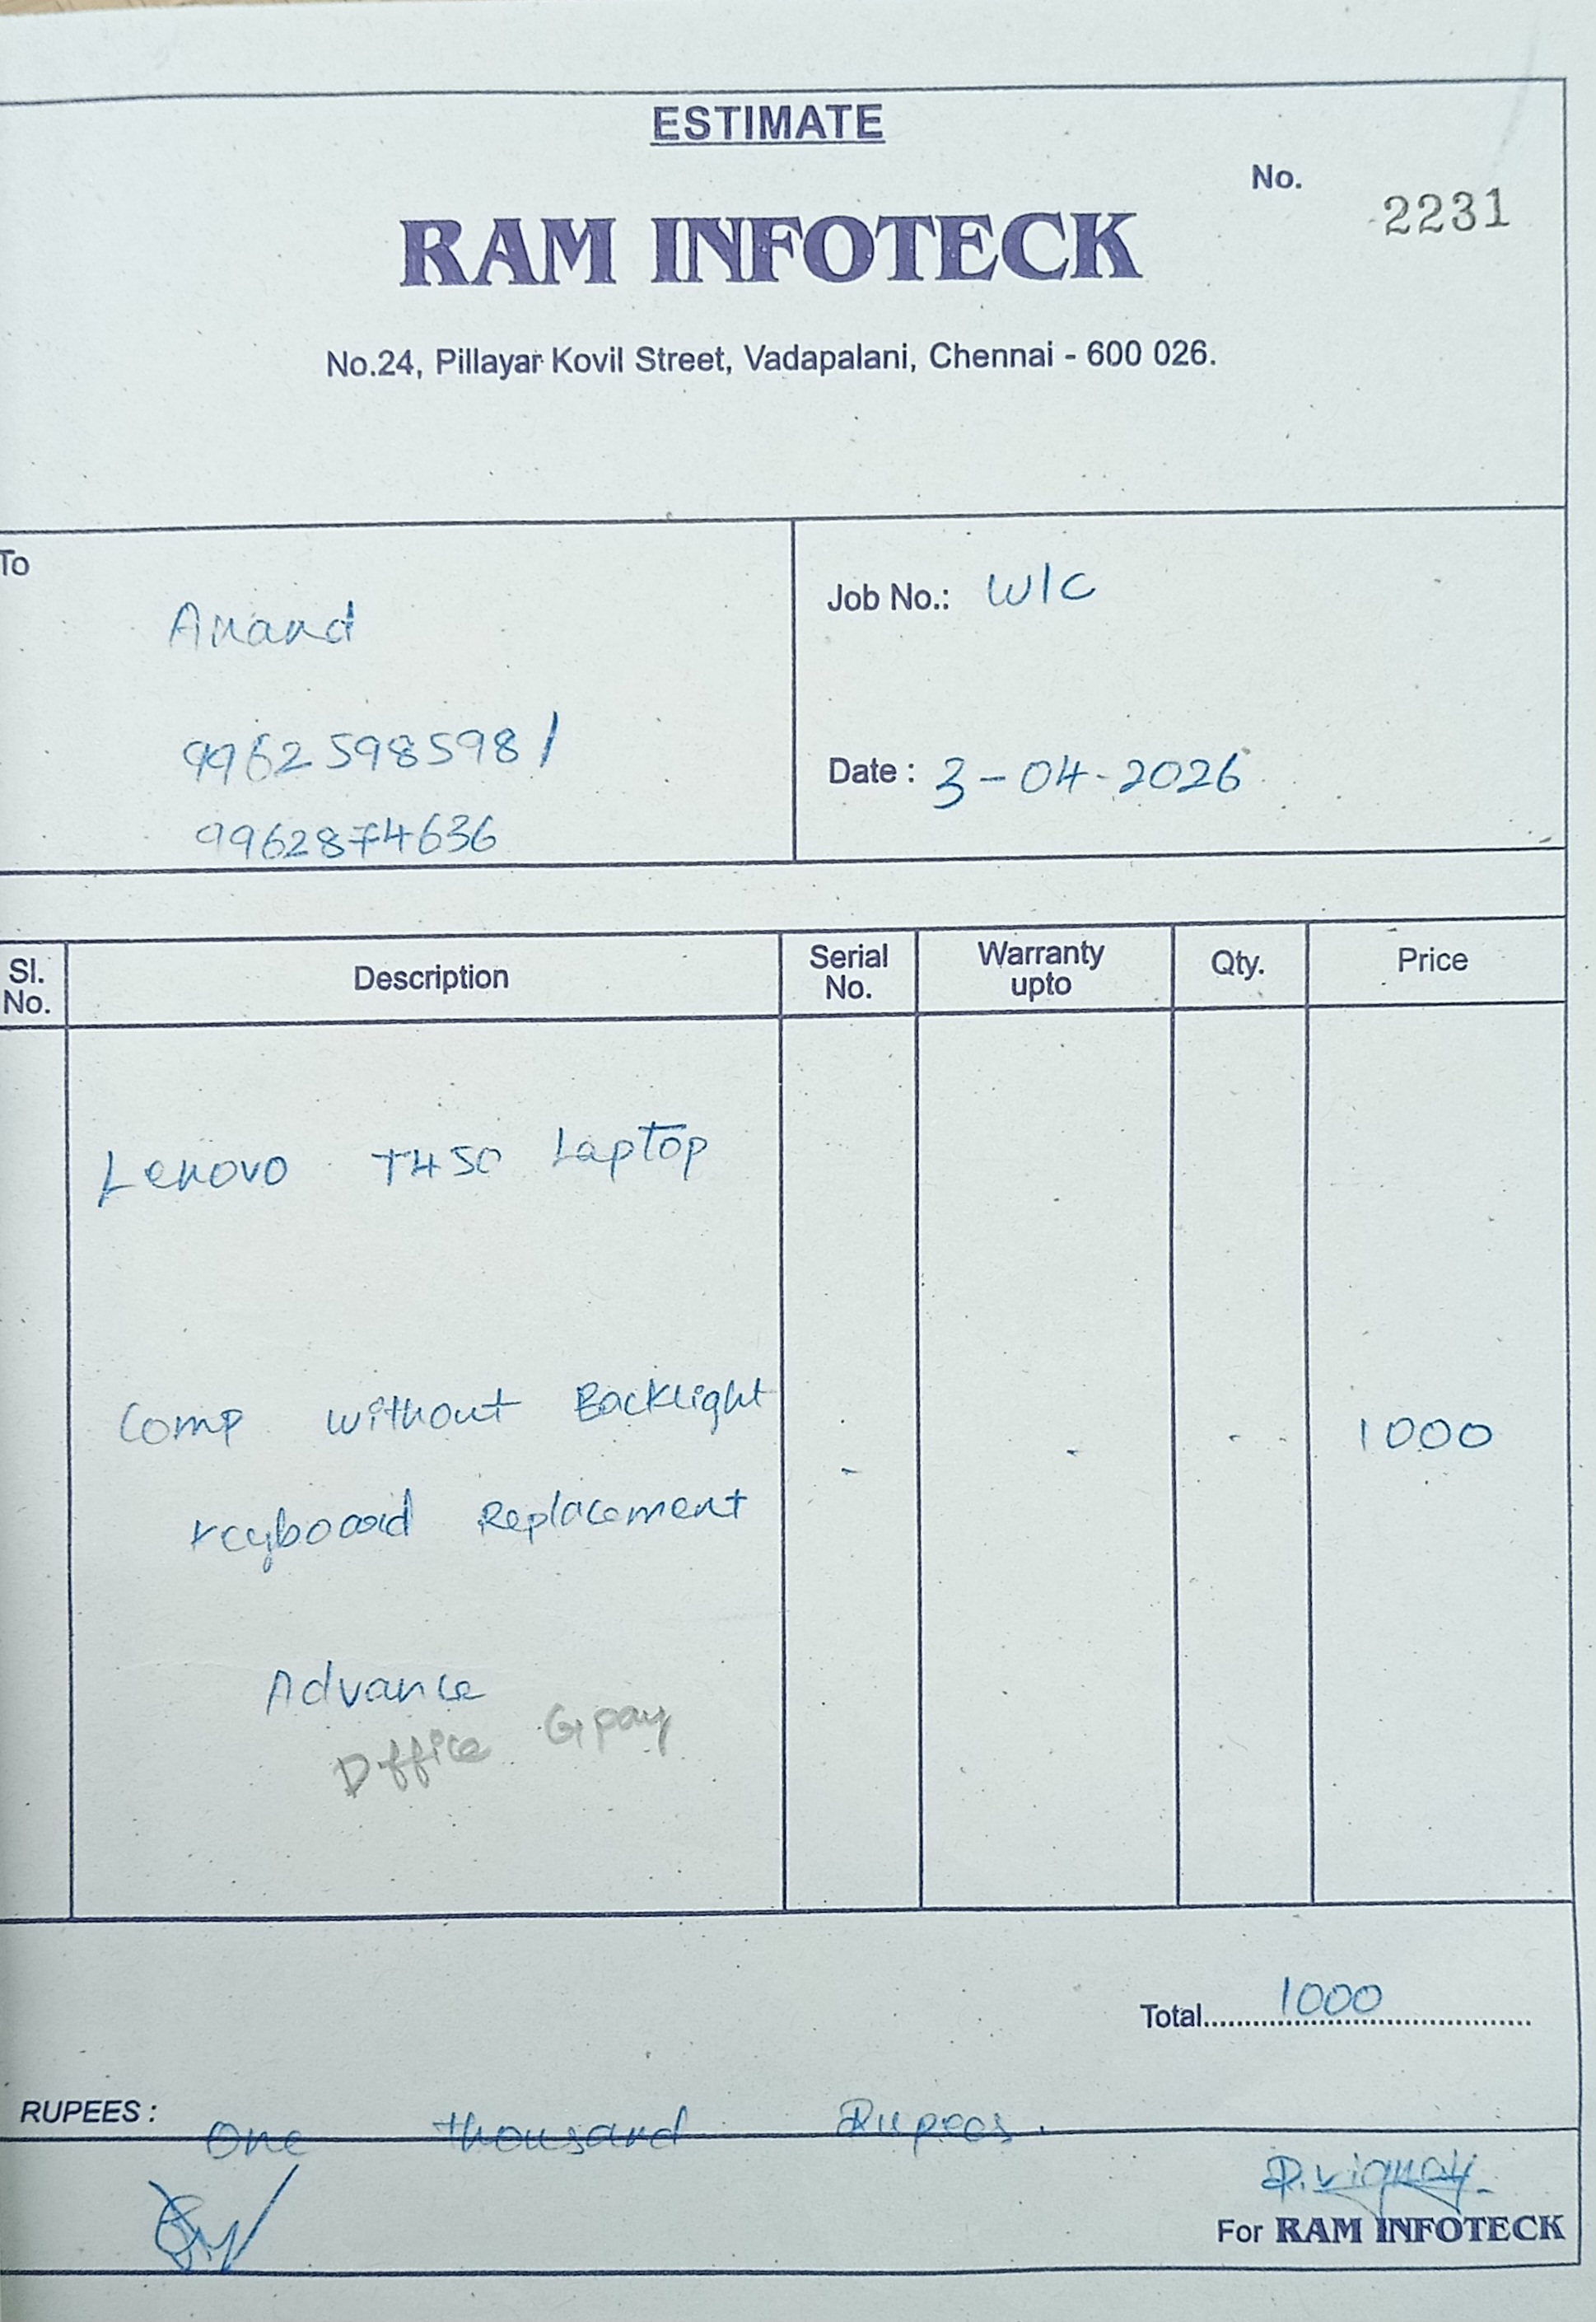 ESTIMATE
No.
2231
RAM INFOTECK
No.24, Pillayar Kovil Street, Vadapalani, Chennai - 600 026.
To
Anand
9962598598 /
9962874636
Job No.: W/C
Date : 3-04-2026
Sl. No. Description Serial No. Warranty upto Qty. Price
Lenovo T450 Laptop
Comp without Backlight - - - 1000
Keyboard Replacement
Advance
Office Gpay
Total 1000
RUPEES : One thousand Rupees.
P. Vignay.
For RAM INFOTECK